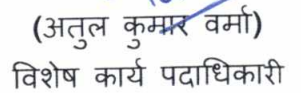 (अतुल कुमार वर्मा)
विशेष कार्य पदाधिकारी